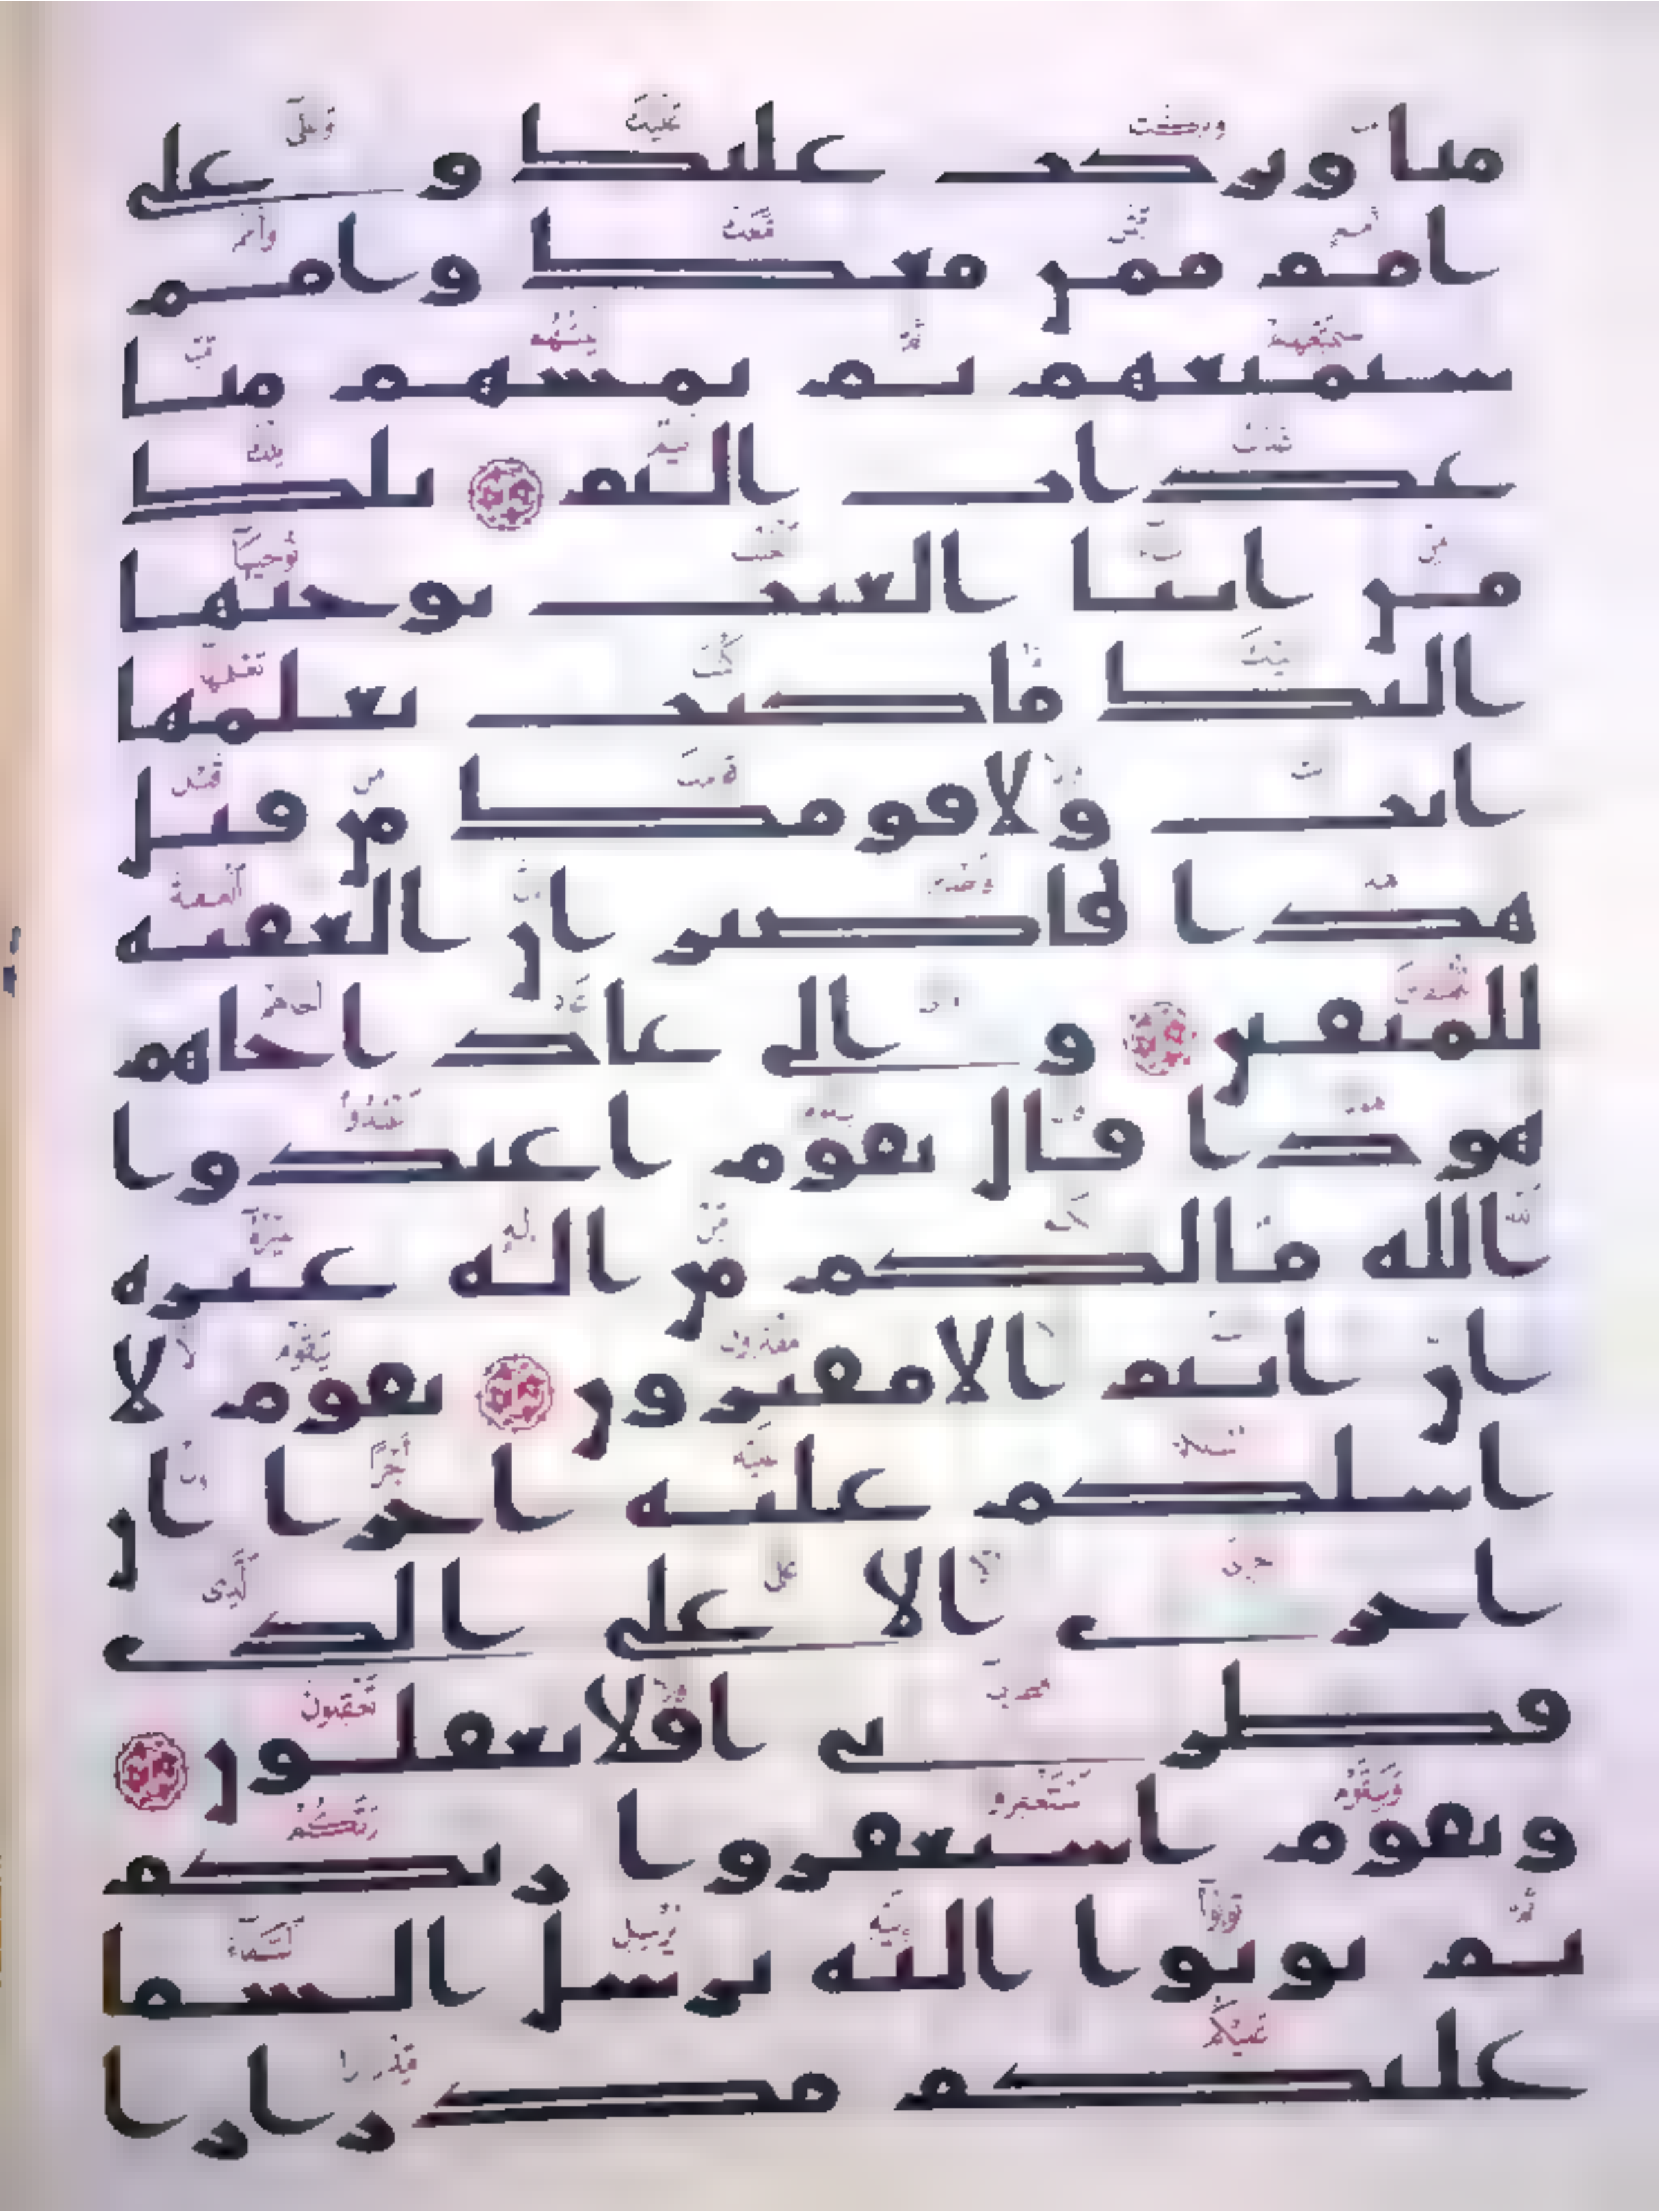 منا وبركت عليك وعلى
امم ممن معك وامم
سنمتعهم ثم يمسهم منا
عذاب اليم تلك
من انبا الغيب نوحيها
اليك ما كنت تعلمها
انت ولا قومك من قبل
هذا فاصبر ان العقبه
للمتقين والى عاد اخاهم
هودا قال يقوم اعبدوا
الله ما لكم من اله غيره
ان انتم الا مفترون يقوم لا
اسلكم عليه اجرا ان
اجرى الا على الذى
فطرنى افلا تعقلون
ويقوم استغفروا ربكم
ثم توبوا اليه يرسل السما
عليكم مدرارا